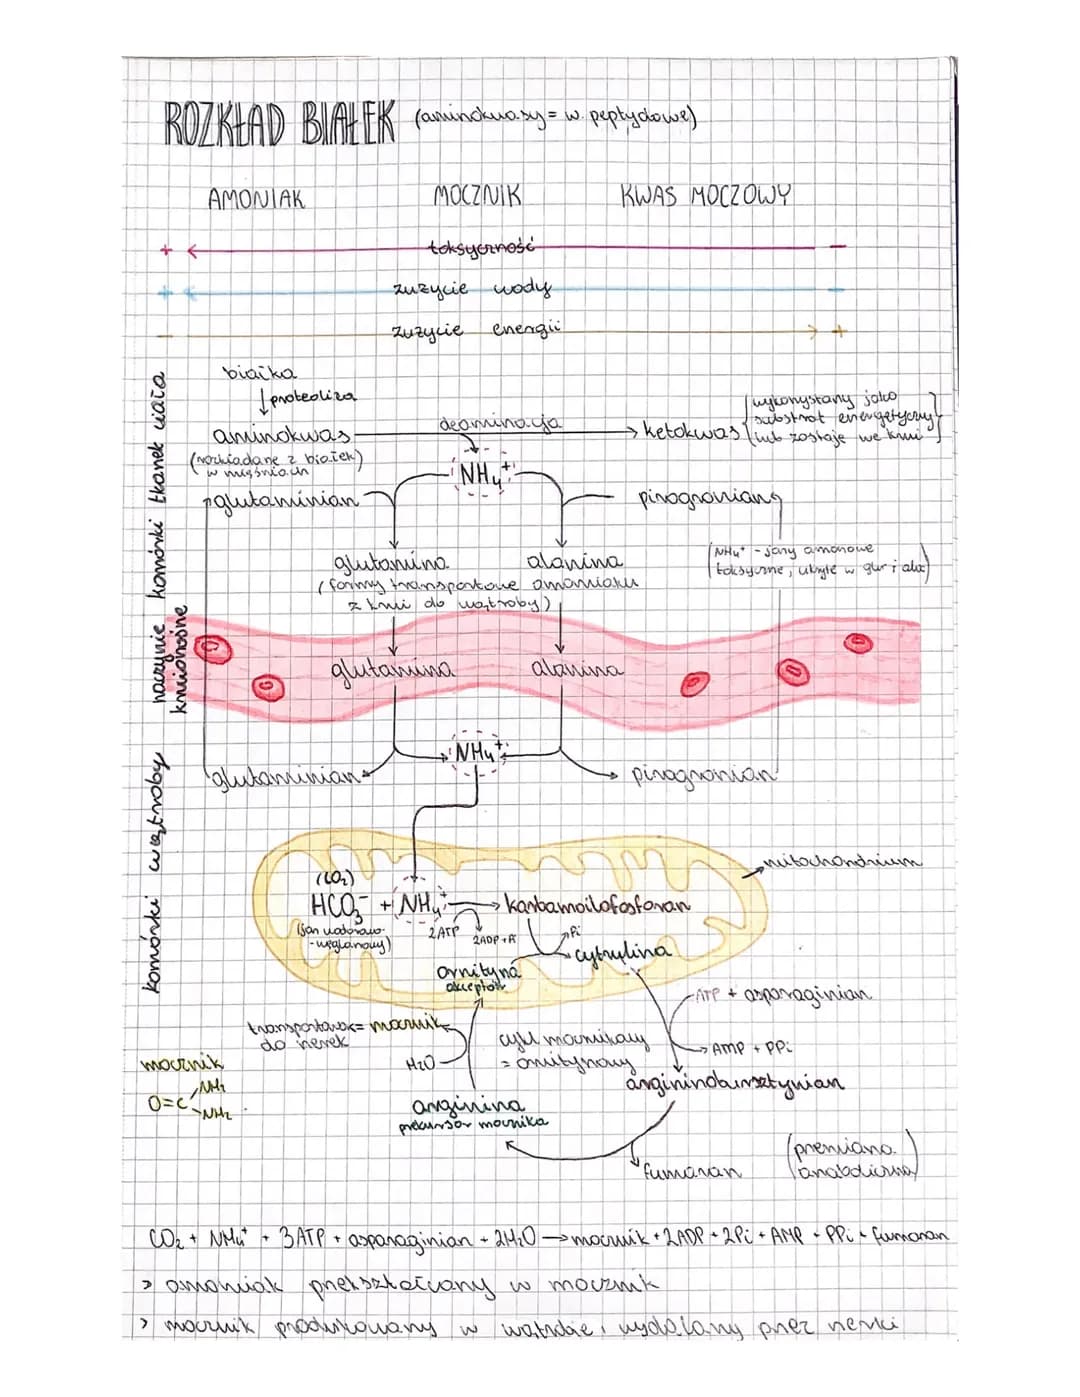 ROZKŁAD BIAŁEK (aminokwasy = w. peptydowe)
AMONIAK MOCZNIK KWAS MOCZOWY
+ toksyczność -
+ zużycie wody -
- zużycie energii +
białka
proteoliza
aminokwas deaminacja ketokwas
(rozkładane z białek
w mięśniach)
(wykorzystany jako
substrat energetyczny
lub zostaje we krwi)
NH₄⁺
glutaminian pirogronian
glutamina alanina
(formy transportowe amoniaku
z krwi do wątroby)
(NH₄⁺ - jony amonowe
toksyczne, ukryte w glu i ala)
komórki tkanek ciała
naczynie
krwionośne
glutamina alanina
NH₄⁺
glutaminian pirogronian
komórki wątroby
mitochondrium
(CO₂)
HCO₃⁻ + NH₄⁺ karbamoilofosforan
(jon wodoro-
-węglanowy)
2ATP
2ADP + Pi
Pi
cytrulina
ornityna
akceptor
ATP + asparaginian
AMP + PPi
argininobursztynian
transportowany = mocznik
do nerek
H₂O
cykl mocznikowy
= ornitynowy
mocznik
O=C
NH₂
NH₂
arginina
prekursor mocznika
fumaran
(przemiana
anaboliczna)
CO₂ + NH₄⁺ + 3ATP + asparaginian + 2H₂O → mocznik + 2ADP + 2Pi + AMP + PPi + fumaran
> amoniak przekształcany w mocznik
> mocznik produkowany w wątrobie, wydalany przez nerki